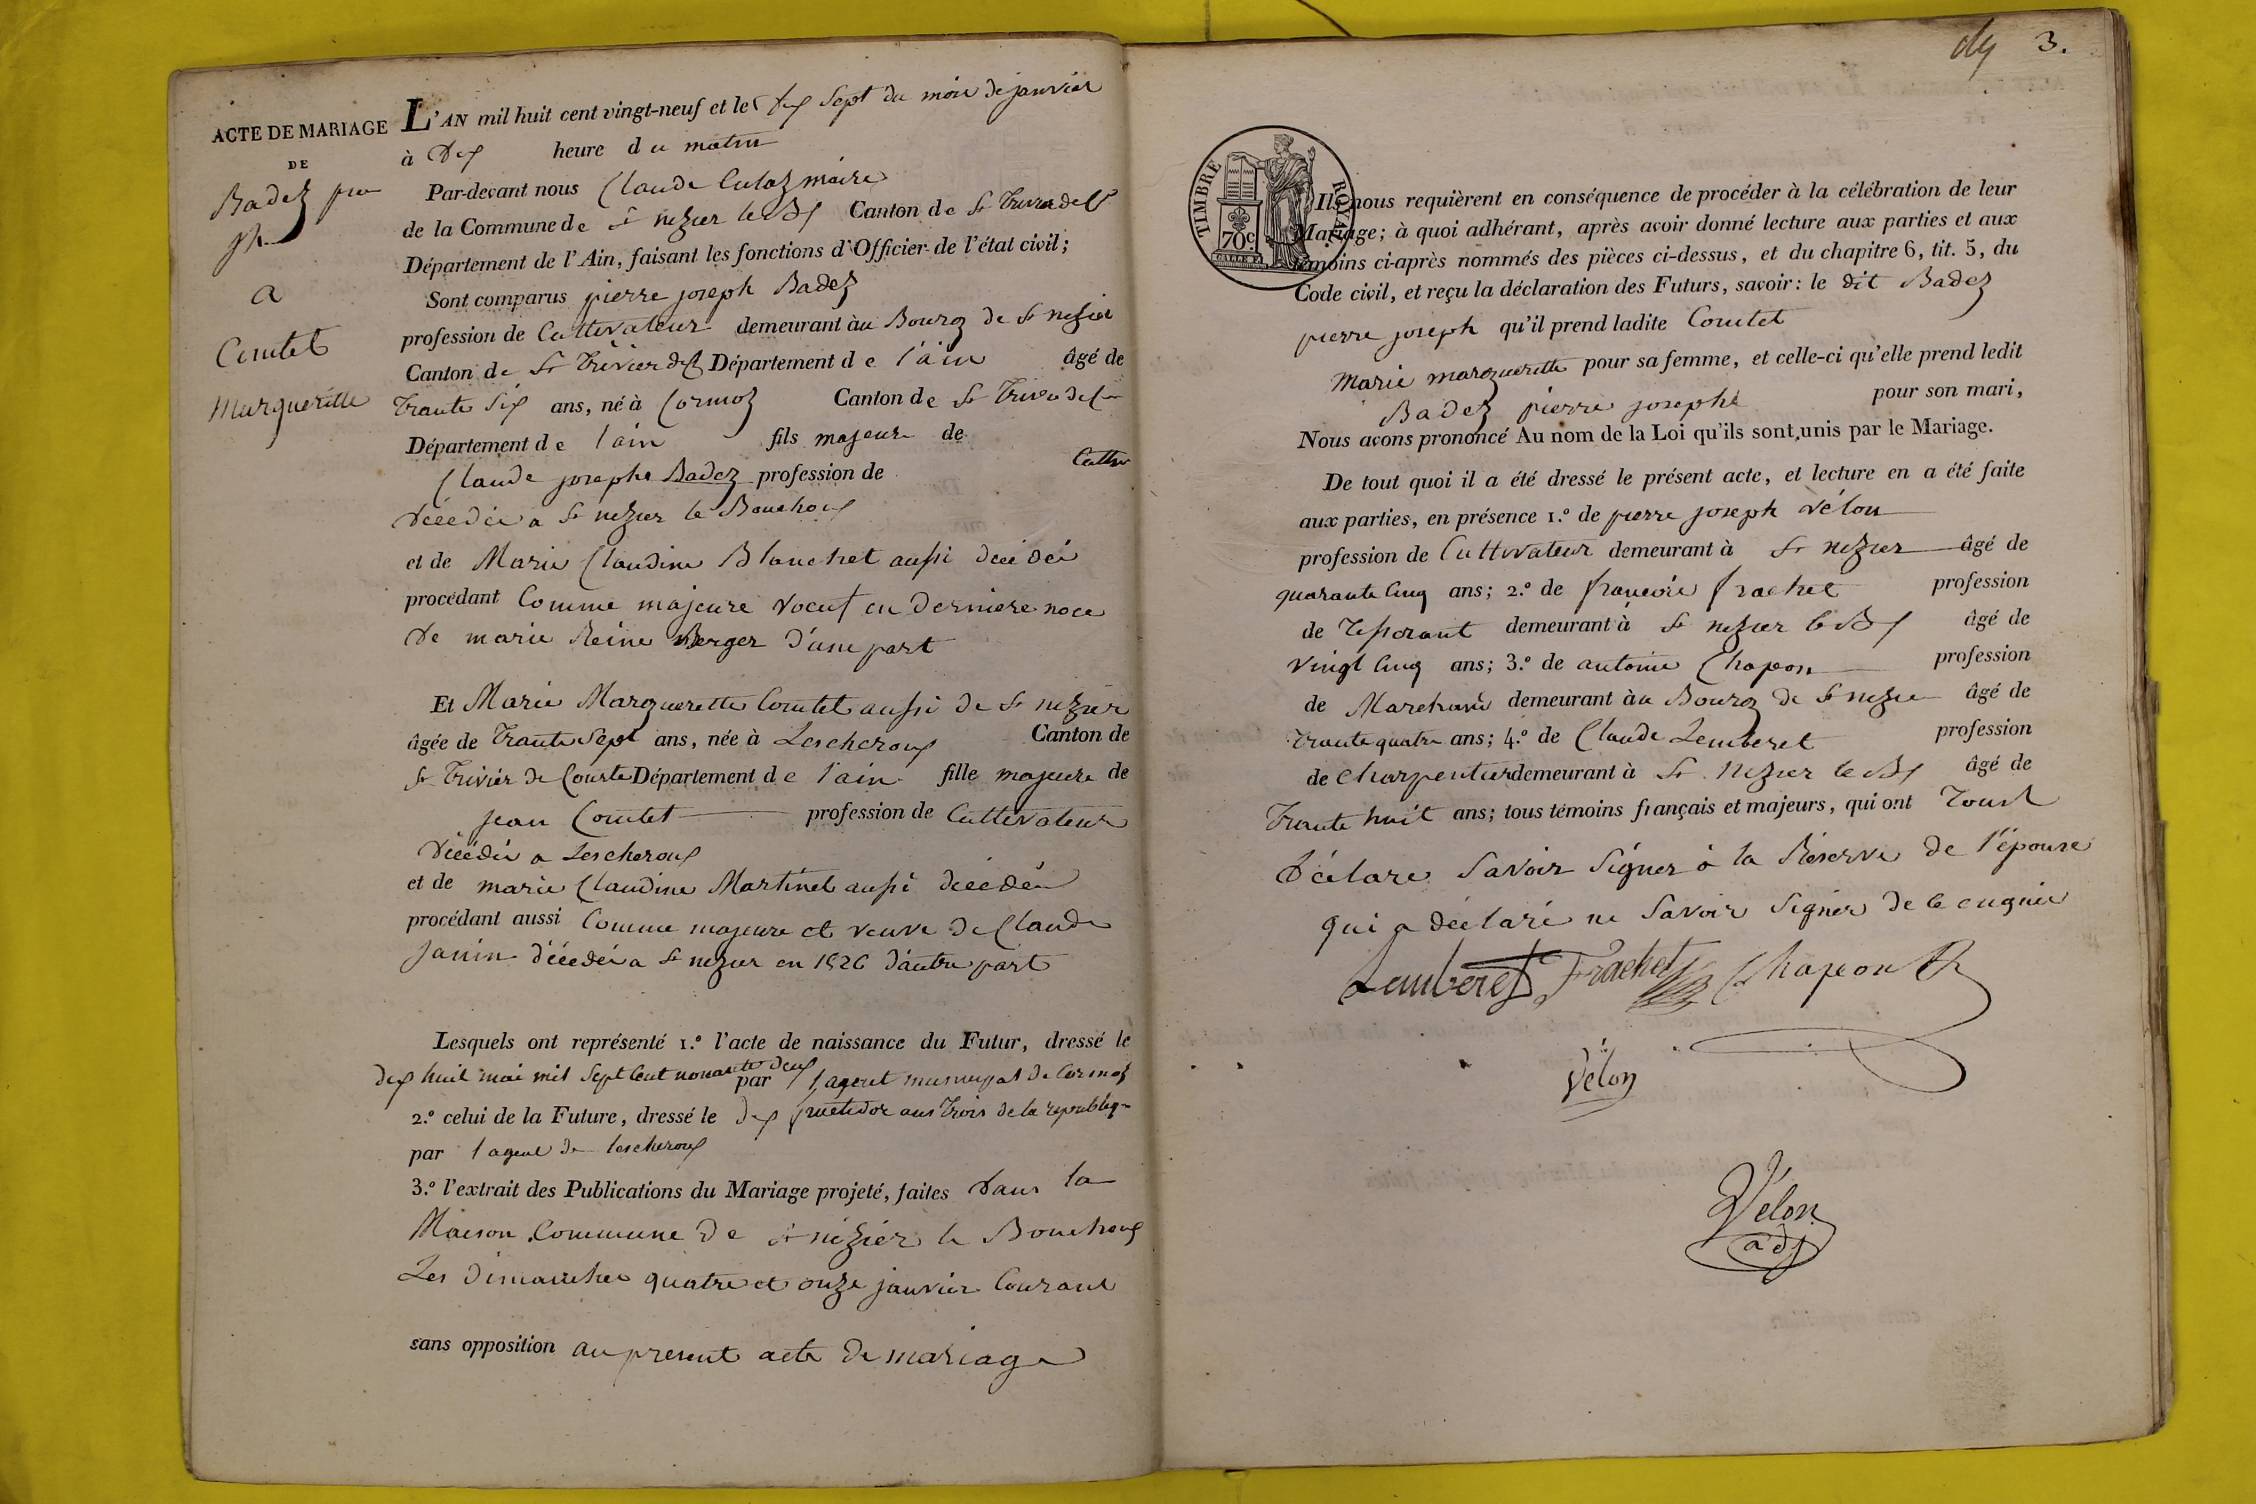 ACTE DE MARIAGE
DE
Badez pre
jh
a
Comtet
Margueritte
L'AN mil huit cent vingt-neuf et le dix sept du mois de janvier
à dix heure du matin
Par-devant nous Claude Culaz maire
de la Commune de St nezier le Bx Canton de St Trivier de Cte
Département de l'Ain, faisant les fonctions d'Officier de l'état civil;
Sont comparus pierre joseph Badez
profession de Cultivateur demeurant àu Bourg de St nezier
Canton de St Trivier de Cte Département de l'ain âgé de
Trante Six ans, né à Cormoz Canton de St Trivier de Cte
Département de l'ain fils majeure de
Claude josephe Badez profession de Cultivr
décédé a St nezier le Bouchoux
et de Marie Claudine Blanchet aussi décédée
procédant Comme majeure voeuf en derniere noce
de marie Reine Berger d'une part
Et Marie Marguerette Comtet aussi de St nezier
âgée de Trante Sept ans, née à Lescheroux Canton de
St Trivier de Courte Département de l'ain fille majeure de
jean Comtet profession de Cultivateur
décédé a Lescheroux
et de marie Claudine Martinet aussi décédée
procédant aussi Comme majeure et veuve de Claude
Janin décédé a St nezier en 1826 d'autre part
Lesquels ont représenté 1.º l'acte de naissance du Futur, dressé le
dix huit mai mil sept Cent nonante deux par l'agent municipal de Cormoz
2.º celui de la Future, dressé le dix fructidor ans Trois de la republiq
par l'agent de lescheroux
3.º l'extrait des Publications du Mariage projeté, faites dans la
Maison Commune de St nizier le Bouchoux
Les dimanches quatre et onze janvier Courant
sans opposition au present acte de mariage
3.
TIMBRE ROYAL
70c.
Ils nous requièrent en conséquence de procéder à la célébration de leur
Mariage; à quoi adhérant, après avoir donné lecture aux parties et aux
témoins ci-après nommés des pièces ci-dessus, et du chapitre 6, tit. 5, du
Code civil, et reçu la déclaration des Futurs, savoir: le dit Badez
pierre joseph qu'il prend ladite Comtet
Marie marguerette pour sa femme, et celle-ci qu'elle prend ledit
Badez pierre josephe pour son mari,
Nous avons prononcé Au nom de la Loi qu'ils sont unis par le Mariage.
De tout quoi il a été dressé le présent acte, et lecture en a été faite
aux parties, en présence 1.º de pierre joseph Vélon
profession de Cultivateur demeurant à St nezier âgé de
quarante Cinq ans; 2.º de françois frachet profession
de Tisserant demeurant à St nezier le Bx âgé de
vingt Cinq ans; 3.º de antoine Chapon profession
de Marchand demeurant àu Bourg de St nezie âgé de
Trante quatre ans; 4.º de Claude Lemberet profession
de Charpentier demeurant à St Nezier le Bx âgé de
Trante huit ans; tous témoins français et majeurs, qui ont Tous
déclare Savoir Signer à la Réserve de l'épouse
qui a déclaré ne Savoir Signer de ce enquise
Lemberet Frachet Chapon
Vélon
Vélon
adj